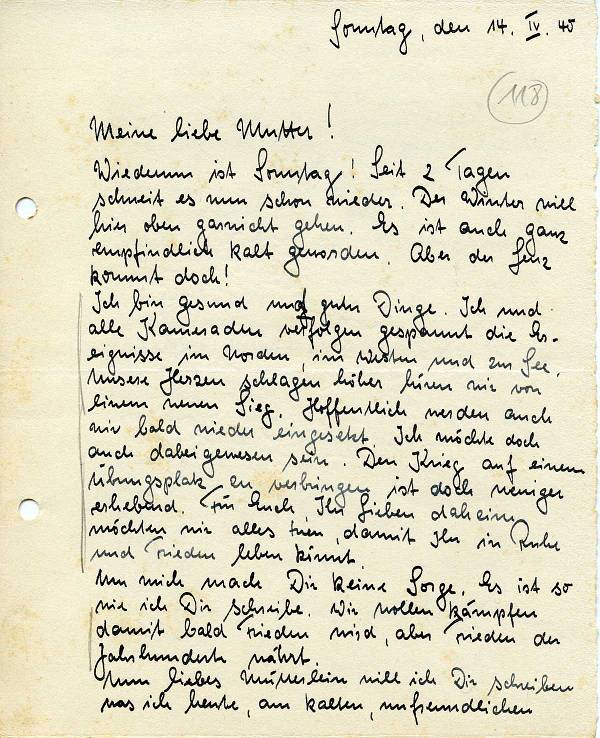 Sonntag, den 14. IV. 40
118
Meine liebe Mutter!
Wiederum ist Sonntag! Seit 2 Tagen
schneit es nun schon wieder. Der Winter will
hier oben garnicht gehen. Es ist auch ganz
empfindlich kalt geworden. Aber der Lenz
kommt doch!
Ich bin gesund und guter Dinge. Ich und
alle Kameraden verfolgen gespannt die Er-
eignisse im Norden, im Westen und zur See.
Unsere Herzen schlagen höher hören wir von
einem neuen Sieg. Hoffentlich werden auch
wir bald wieder eingesetzt. Ich möchte doch
auch dabeigewesen sein. Den Krieg auf einem
Übungsplatz zu verbringen ist doch weniger
erhebend. Für Euch, Ihr Lieben daheim
möchten wir alles tuen, damit Ihr in Ruhe
und Frieden leben könnt.
Um mich mach Dir keine Sorge. Es ist so
wie ich Dir schreibe. Wir wollen kämpfen
damit bald Frieden wird, aber Frieden der
Jahrhunderte währt.
Nun liebes Mütterlein will ich Dir schreiben
was ich heute, am kalten, unfreundlichen